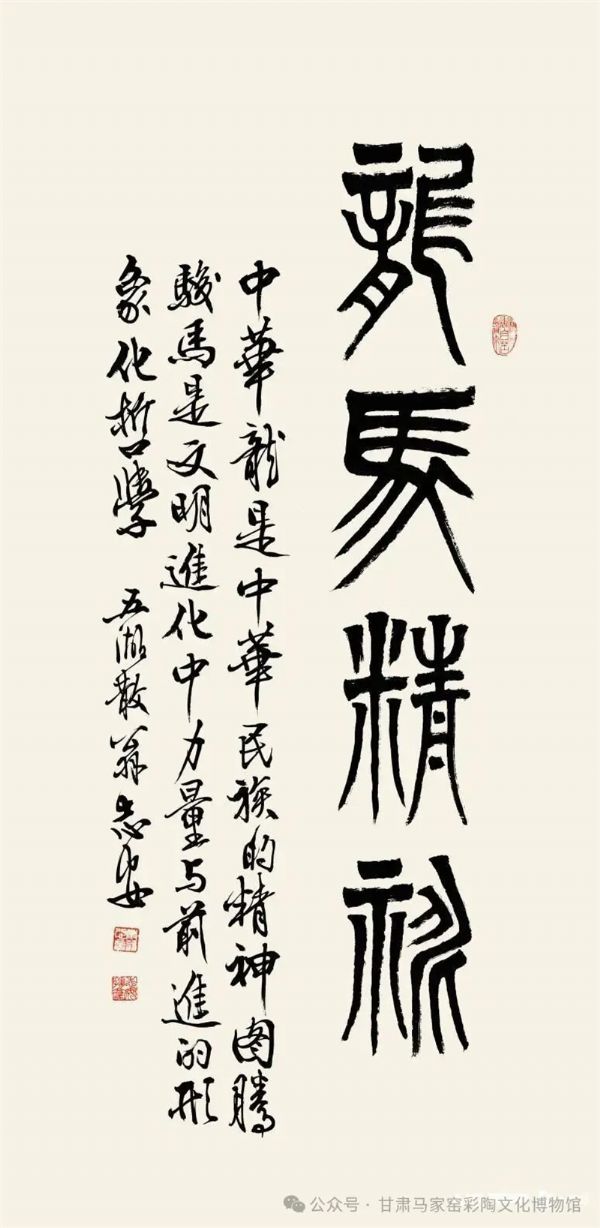 龍馬精神
中華龍是中華民族的精神图騰
駿馬是文明進化中力量与前進的形
象化哲學 五湖散翁志安
公众号·甘肃马家窑彩陶文化博物馆